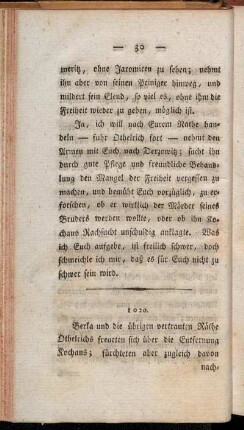 — 30 —
meritz, ohne Jaromiren zu sehen; nehmt
ihn aber von seinen Peiniger hinweg, und
mildert sein Elend, so viel es, ohne ihm die
Freiheit wieder zu geben, möglich ist.
Ja, ich will nach Eurem Rathe han-
deln — fuhr Othelrich fort — nehmt den
Armen mit Euch nach Derzowitz; sucht ihn
durch gute Pflege und freundliche Behand-
lung den Mangel der Freiheit vergessen zu
machen, und bemüht Euch vorzüglich, zu er-
forschen, ob er wirklich der Mörder seines
Bruders werden wollte, oder ob ihn Ko-
chans Rachsucht unschuldig anklagte. Was
ich Euch aufgebe, ist freilich schwer, doch
schmeichle ich mir, daß es für Euch nicht zu
schwer sein wird.
1020.
Berka und die übrigen vertrauten Räthe
Othelrichs freueten sich über die Entfernung
Kochans; fürchteten aber zugleich davon
nach-